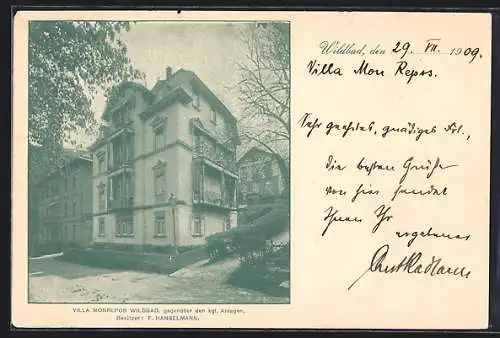 Wildbad, den 29. VII. 1909.
Villa Mon Repos.
Sehr geehrtes, gnädiges Frl.,
die besten Grüße
von hier sendet
Ihnen Ihr
ergebener
VILLA MONREPOS WILDBAD, gegenüber den kgl. Anlagen.
Besitzer: F. HANSELMANN.